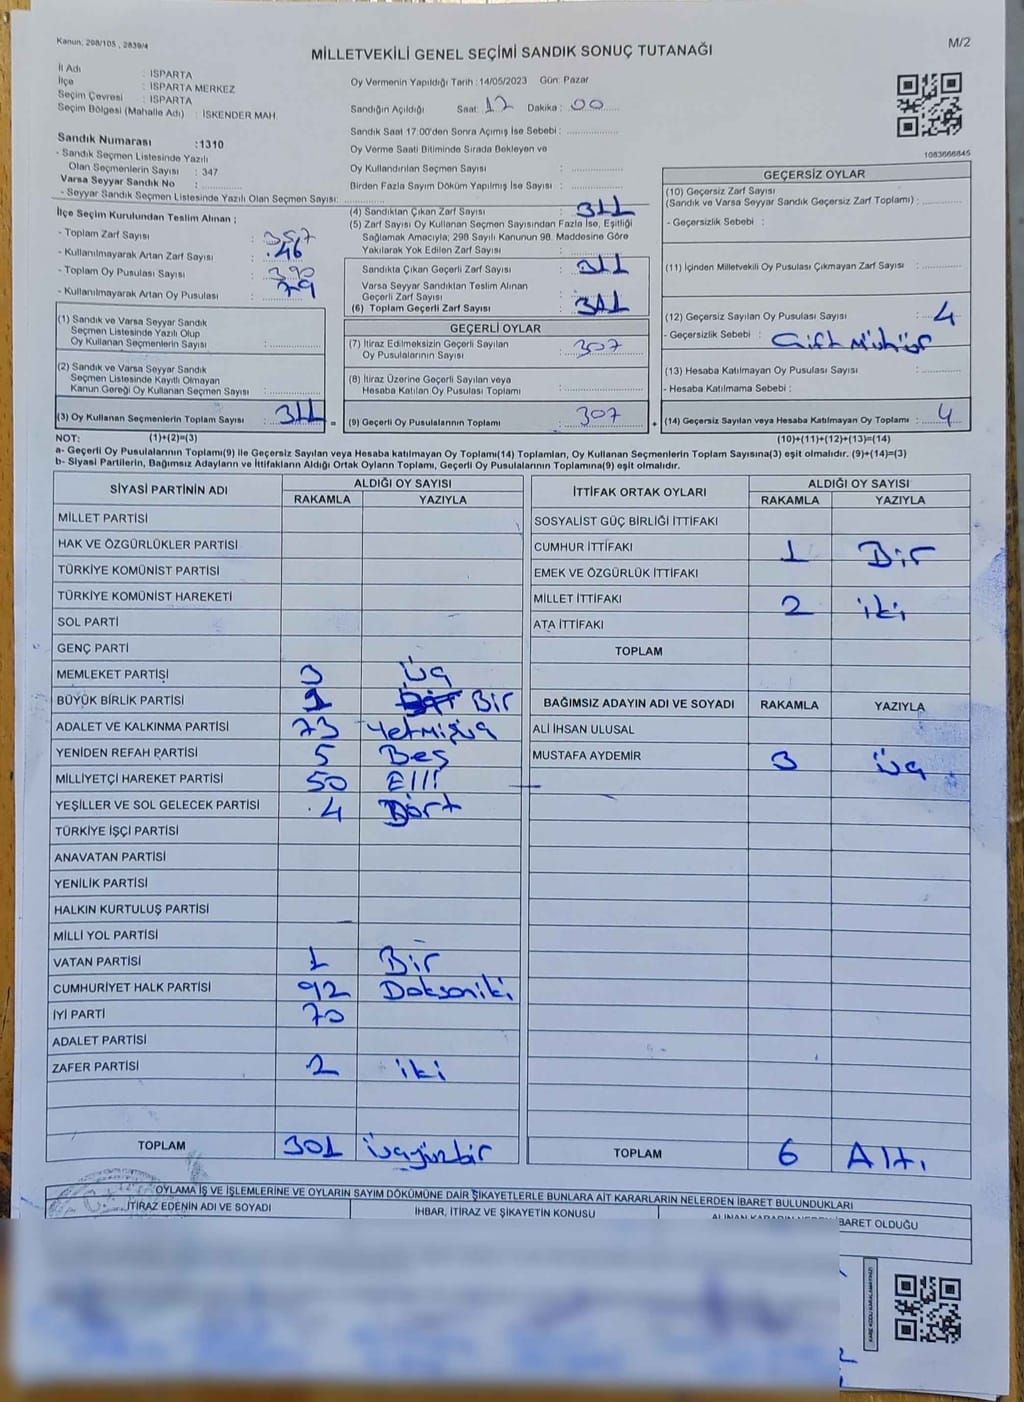 Kanun, 298/105 , 2839/4
M/2
MİLLETVEKİLİ GENEL SEÇİMİ SANDIK SONUÇ TUTANAĞI
İl Adı : ISPARTA
İlçe : ISPARTA MERKEZ
Seçim Çevresi : ISPARTA
Seçim Bölgesi (Mahalle Adı) : İSKENDER MAH.
Oy Vermenin Yapıldığı Tarih :14/05/2023 Gün: Pazar
Sandığın Açıldığı Saat: 17 Dakika : 00
Sandık Saat 17:00'den Sonra Açılmış İse Sebebi :
Oy Verme Saati Bitiminde Sırada Bekleyen ve
Oy Kullandırılan Seçmen Sayısı :
Birden Fazla Sayım Döküm Yapılmış İse Sayısı :
1083666845
Sandık Numarası :1310
- Sandık Seçmen Listesinde Yazılı
Olan Seçmenlerin Sayısı : 347
Varsa Seyyar Sandık No :
- Seyyar Sandık Seçmen Listesinde Yazılı Olan Seçmen Sayısı:
İlçe Seçim Kurulundan Teslim Alınan ;
- Toplam Zarf Sayısı : 357
- Kullanılmayarak Artan Zarf Sayısı : 46
- Toplam Oy Pusulası Sayısı : 390
- Kullanılmayarak Artan Oy Pusulası : 79
(1) Sandık ve Varsa Seyyar Sandık
Seçmen Listesinde Yazılı Olup
Oy Kullanan Seçmenlerin Sayısı :
(2) Sandık ve Varsa Seyyar Sandık
Seçmen Listesinde Kayıtlı Olmayan
Kanun Gereği Oy Kullanan Seçmen Sayısı :
(3) Oy Kullanan Seçmenlerin Toplam Sayısı : 311 =
(4) Sandıktan Çıkan Zarf Sayısı : 311
(5) Zarf Sayısı Oy Kullanan Seçmen Sayısından Fazla İse, Eşitliği
Sağlamak Amacıyla; 298 Sayılı Kanunun 98. Maddesine Göre
Yakılarak Yok Edilen Zarf Sayısı :
Sandıkta Çıkan Geçerli Zarf Sayısı : 311
Varsa Seyyar Sandıktan Teslim Alınan
Geçerli Zarf Sayısı :
(6) Toplam Geçerli Zarf Sayısı : 311
GEÇERLİ OYLAR
(7) İtiraz Edilmeksizin Geçerli Sayılan
Oy Pusulalarının Sayısı : 307
(8) İtiraz Üzerine Geçerli Sayılan veya
Hesaba Katılan Oy Pusulası Toplamı :
(9) Geçerli Oy Pusulalarının Toplamı : 307 +
GEÇERSİZ OYLAR
(10) Geçersiz Zarf Sayısı
(Sandık ve Varsa Seyyar Sandık Geçersiz Zarf Toplamı) :
- Geçersizlik Sebebi :
(11) İçinden Milletvekili Oy Pusulası Çıkmayan Zarf Sayısı :
(12) Geçersiz Sayılan Oy Pusulası Sayısı : 4
- Geçersizlik Sebebi : Çift Mühür
(13) Hesaba Katılmayan Oy Pusulası Sayısı :
- Hesaba Katılmama Sebebi :
(14) Geçersiz Sayılan veya Hesaba Katılmayan Oy Toplamı : 4
NOT: (1)+(2)=(3)
(10)+(11)+(12)+(13)=(14)
a- Geçerli Oy Pusulalarının Toplamı(9) ile Geçersiz Sayılan veya Hesaba katılmayan Oy Toplamı(14) Toplamları, Oy Kullanan Seçmenlerin Toplam Sayısına(3) eşit olmalıdır. (9)+(14)=(3)
b- Siyasi Partilerin, Bağımsız Adayların ve İttifakların Aldığı Ortak Oyların Toplamı, Geçerli Oy Pusulalarının Toplamına(9) eşit olmalıdır.
SİYASİ PARTİNİN ADI
ALDIĞI OY SAYISI
RAKAMLA YAZIYLA
MİLLET PARTİSİ
HAK VE ÖZGÜRLÜKLER PARTİSİ
TÜRKİYE KOMÜNİST PARTİSİ
TÜRKİYE KOMÜNİST HAREKETİ
SOL PARTİ
GENÇ PARTİ
MEMLEKET PARTİSİ 3 Üç
BÜYÜK BİRLİK PARTİSİ 1 Bir
ADALET VE KALKINMA PARTİSİ 73 Yetmişüç
YENİDEN REFAH PARTİSİ 5 Beş
MİLLİYETÇİ HAREKET PARTİSİ 50 Elli
YEŞİLLER VE SOL GELECEK PARTİSİ 4 Dört
TÜRKİYE İŞÇİ PARTİSİ
ANAVATAN PARTİSİ
YENİLİK PARTİSİ
HALKIN KURTULUŞ PARTİSİ
MİLLİ YOL PARTİSİ
VATAN PARTİSİ 1 Bir
CUMHURİYET HALK PARTİSİ 92 Doksaniki
İYİ PARTİ 70
ADALET PARTİSİ
ZAFER PARTİSİ 2 iki
TOPLAM 301 Üçyüzbir
İTTİFAK ORTAK OYLARI
ALDIĞI OY SAYISI
RAKAMLA YAZIYLA
SOSYALİST GÜÇ BİRLİĞİ İTTİFAKI
CUMHUR İTTİFAKI 1 Bir
EMEK VE ÖZGÜRLÜK İTTİFAKI
MİLLET İTTİFAKI 2 iki
ATA İTTİFAKI
TOPLAM
BAĞIMSIZ ADAYIN ADI VE SOYADI RAKAMLA YAZIYLA
ALİ İHSAN ULUSAL
MUSTAFA AYDEMİR 3 Üç
TOPLAM 6 Altı
OYLAMA İŞ VE İŞLEMLERİNE VE OYLARIN SAYIM DÖKÜMÜNE DAİR ŞİKAYETLERLE BUNLARA AİT KARARLARIN NELERDEN İBARET BULUNDUKLARI
İTİRAZ EDENİN ADI VE SOYADI
İHBAR, İTİRAZ VE ŞİKAYETİN KONUSU
BARET OLDUĞU